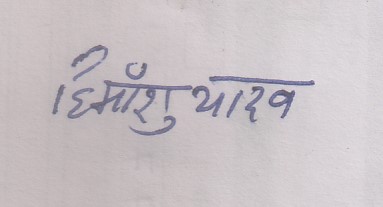 हिमाँशु यादव